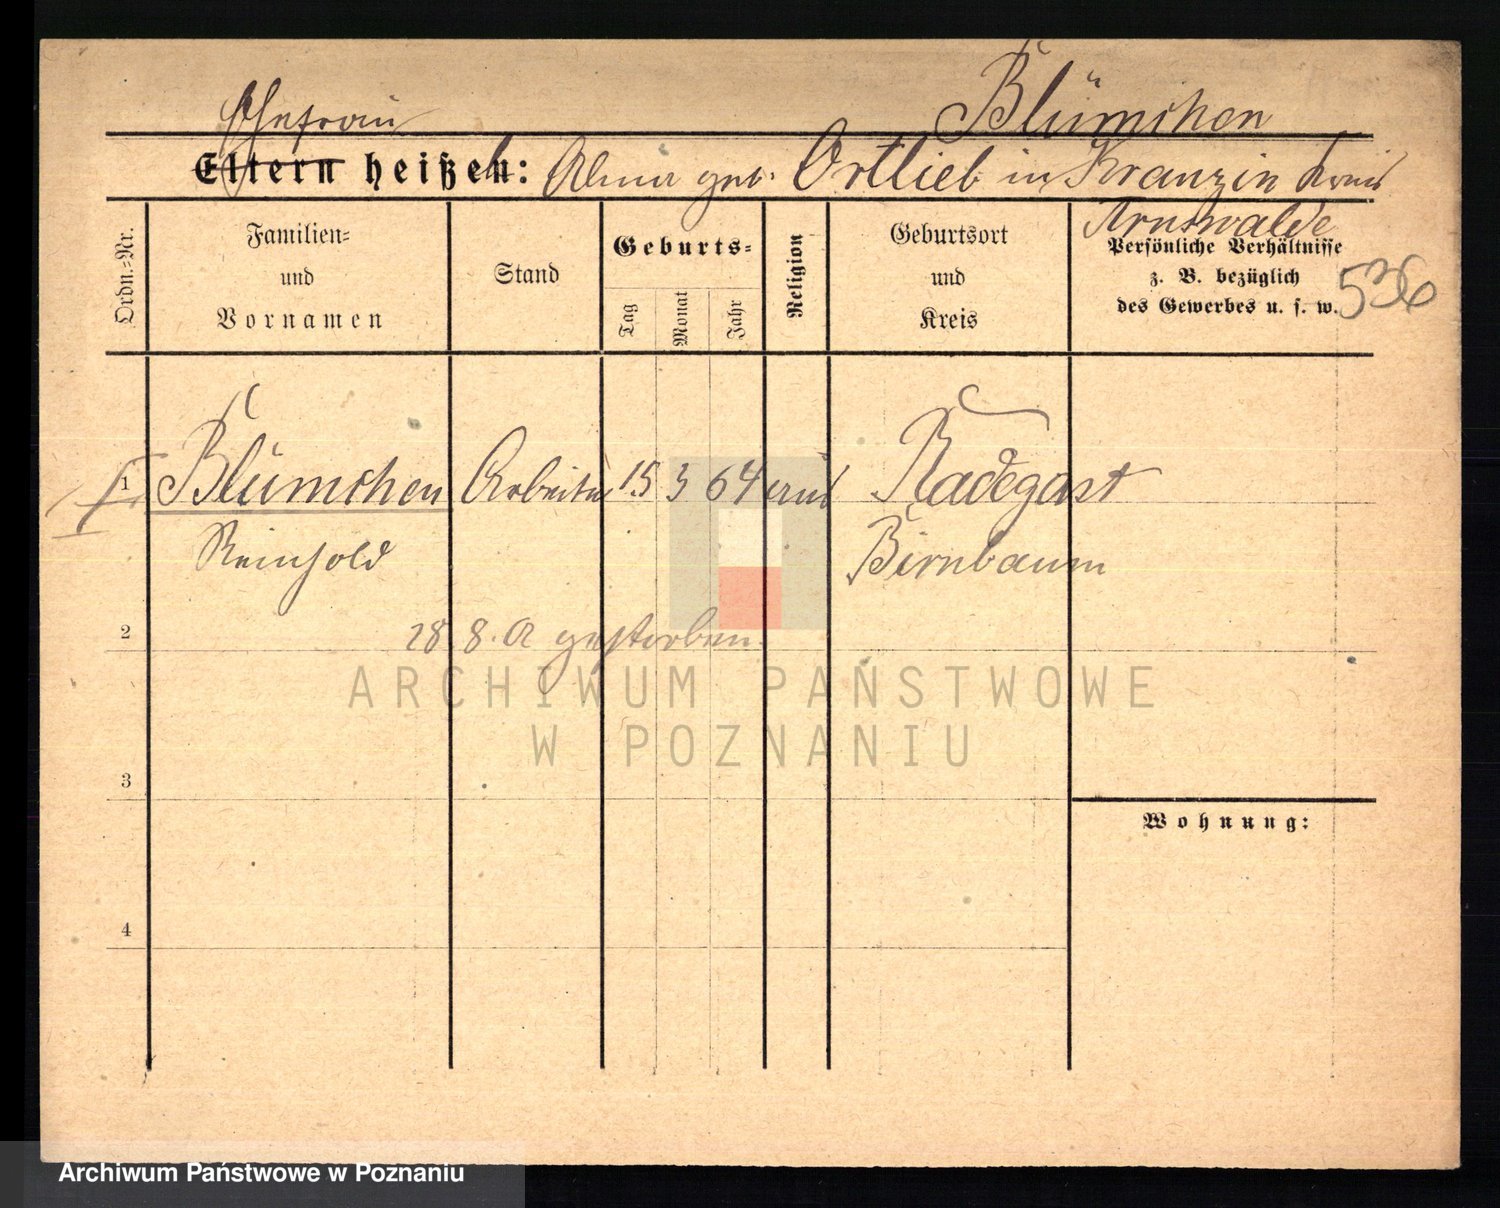 Blümchen
Ehefrau
Eltern heißen: Alma geb. Ortlieb in Kranzin Kreis
Arnswalde
Ordn.-Nr.
Familien-
und
Vornamen
Stand
Geburts-
Tag
Monat
Jahr
Religion
Geburtsort
und
Kreis
Persönliche Verhältnisse
z. B. bezüglich
des Gewerbes u. s. w.
536
1 Blümchen Arbeiter 15 3 64 Radegast
Reinhold Birnbaum
2 28. 8. gestorben.
3
4
Wohnung:
ARCHIWUM PAŃSTWOWE
W POZNANIU
Archiwum Państwowe w Poznaniu